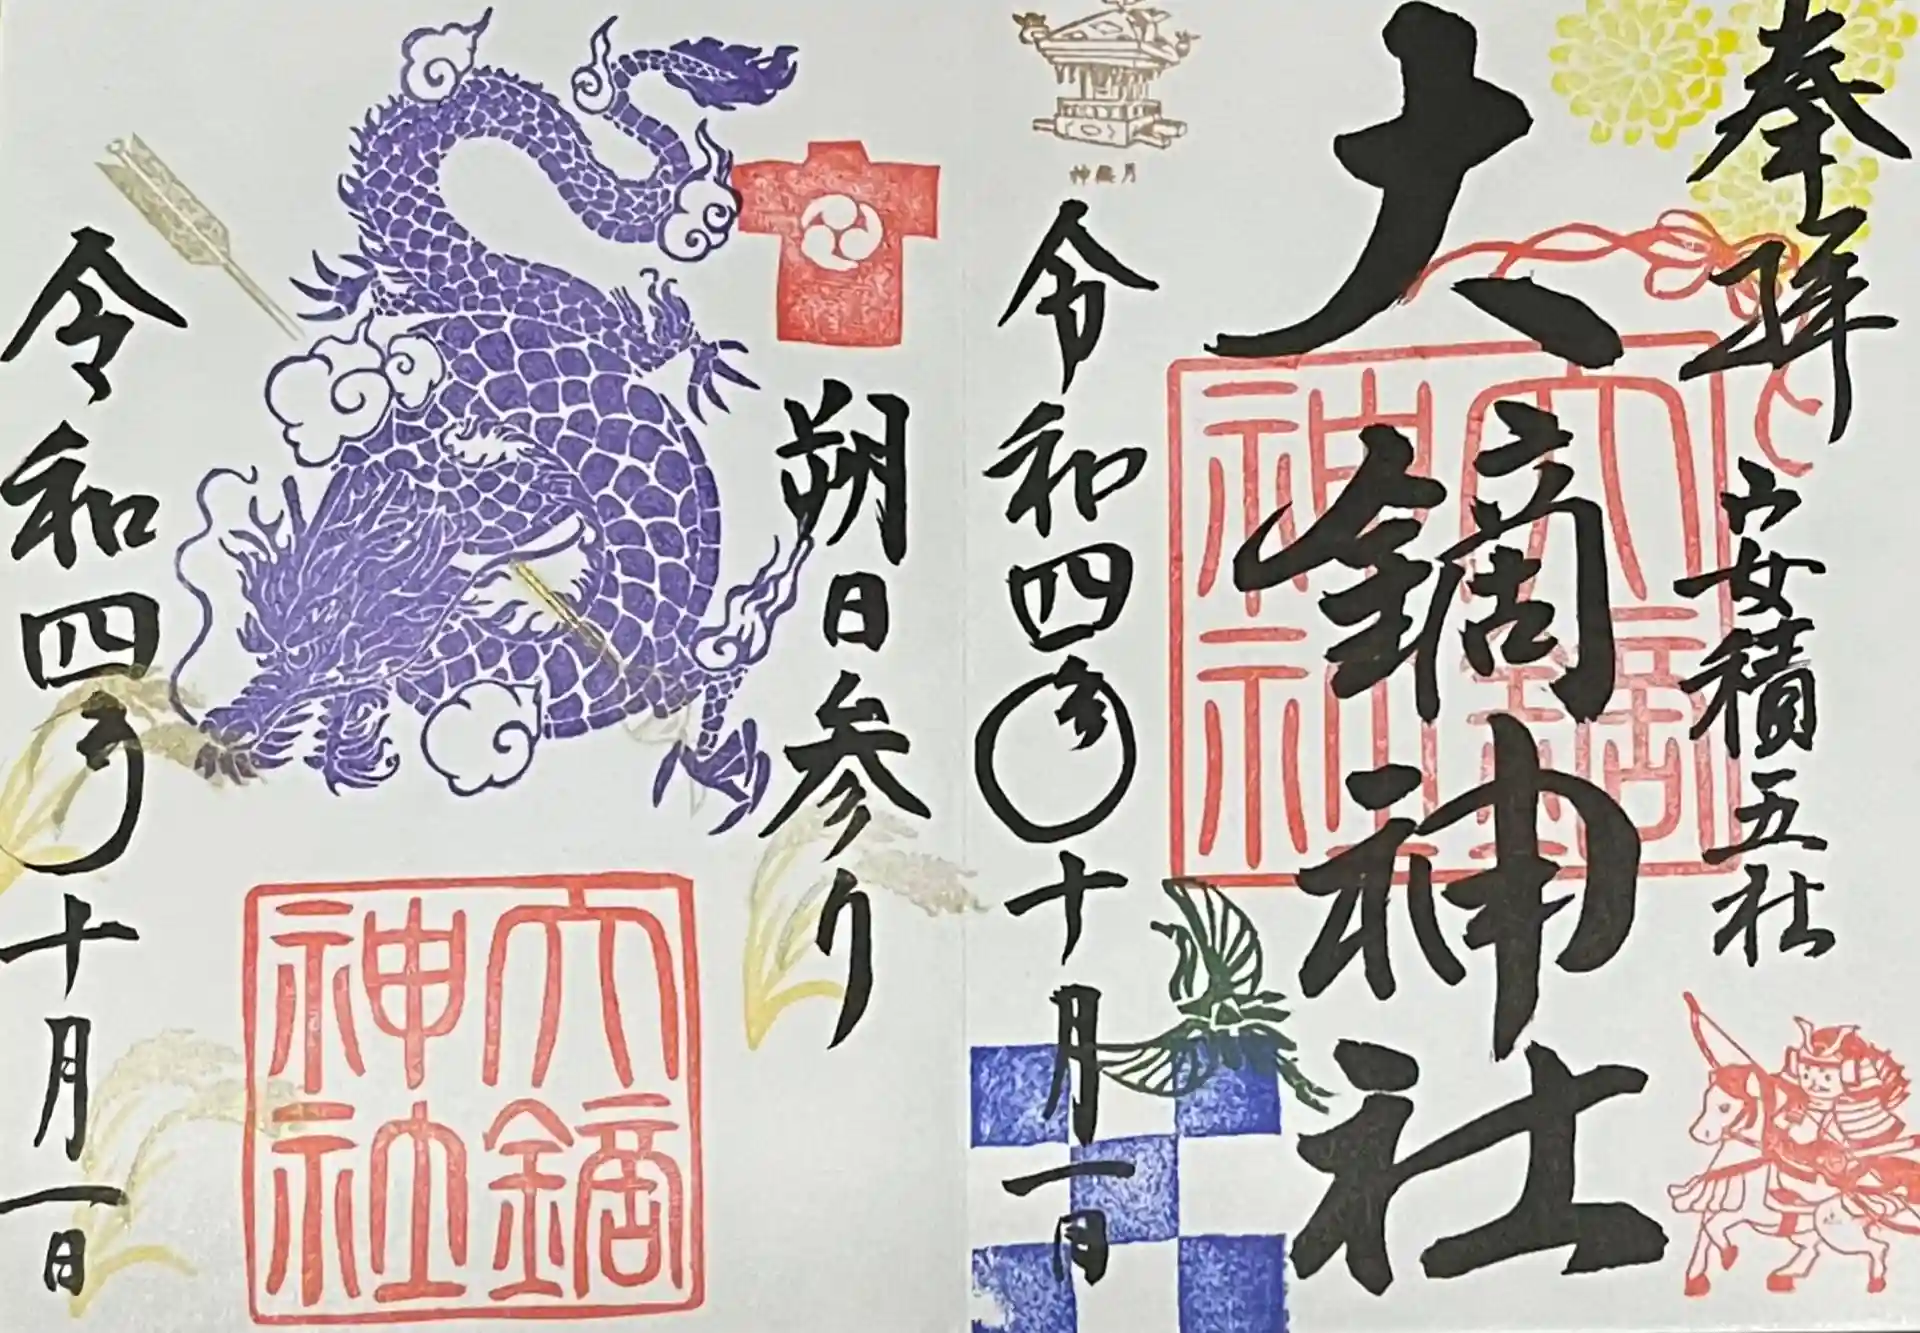 奉拝
安積五社
大鏑神社
大鏑
神社
神無月
令和四年十月一日
朔日参り
大鏑
神社
令和四年十月一日